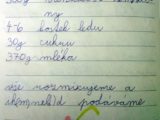 ny
4-6 kostek ledu
30g cukru
370g mléka
vše rozmixujeme a
podáváme